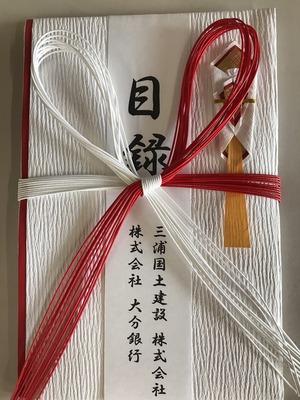 目録
三浦国土建設 株式会社
株式会社 大分銀行